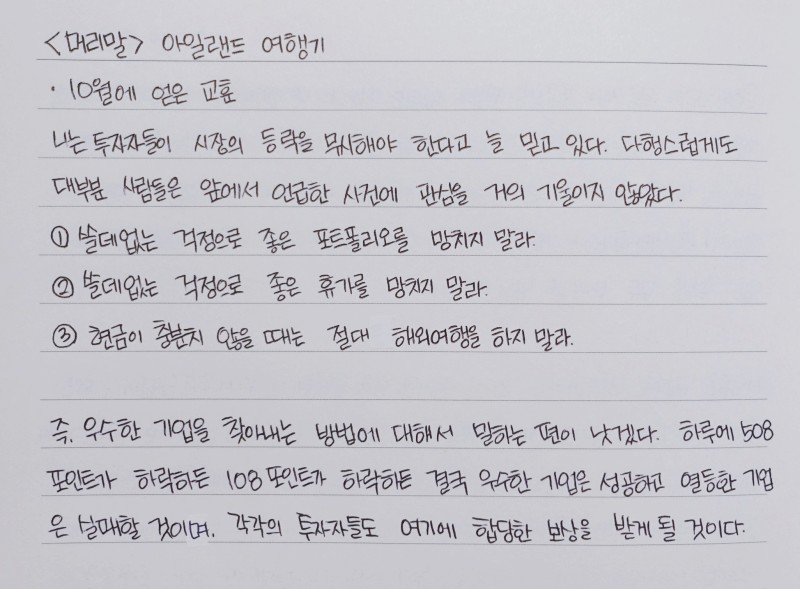 <머리말> 아일랜드 여행기
· 10월에 얻은 교훈
나는 투자자들이 시장의 등락을 무시해야 한다고 늘 믿고 있다. 다행스럽게도
대부분 사람들은 앞에서 언급한 사건에 관심을 거의 기울이지 않았다.
① 쓸데없는 걱정으로 좋은 포트폴리오를 망치지 말라.
② 쓸데없는 걱정으로 좋은 휴가를 망치지 말라.
③ 현금이 충분치 않을 때는 절대 해외여행을 하지 말라.
즉, 우수한 기업을 찾아내는 방법에 대해서 말하는 편이 낫겠다. 하루에 508
포인트가 하락하든 108포인트가 하락하든 결국 우수한 기업은 성공하고 열등한 기업
은 실패할 것이며, 각각의 투자자들도 여기에 합당한 보상을 받게 될 것이다.